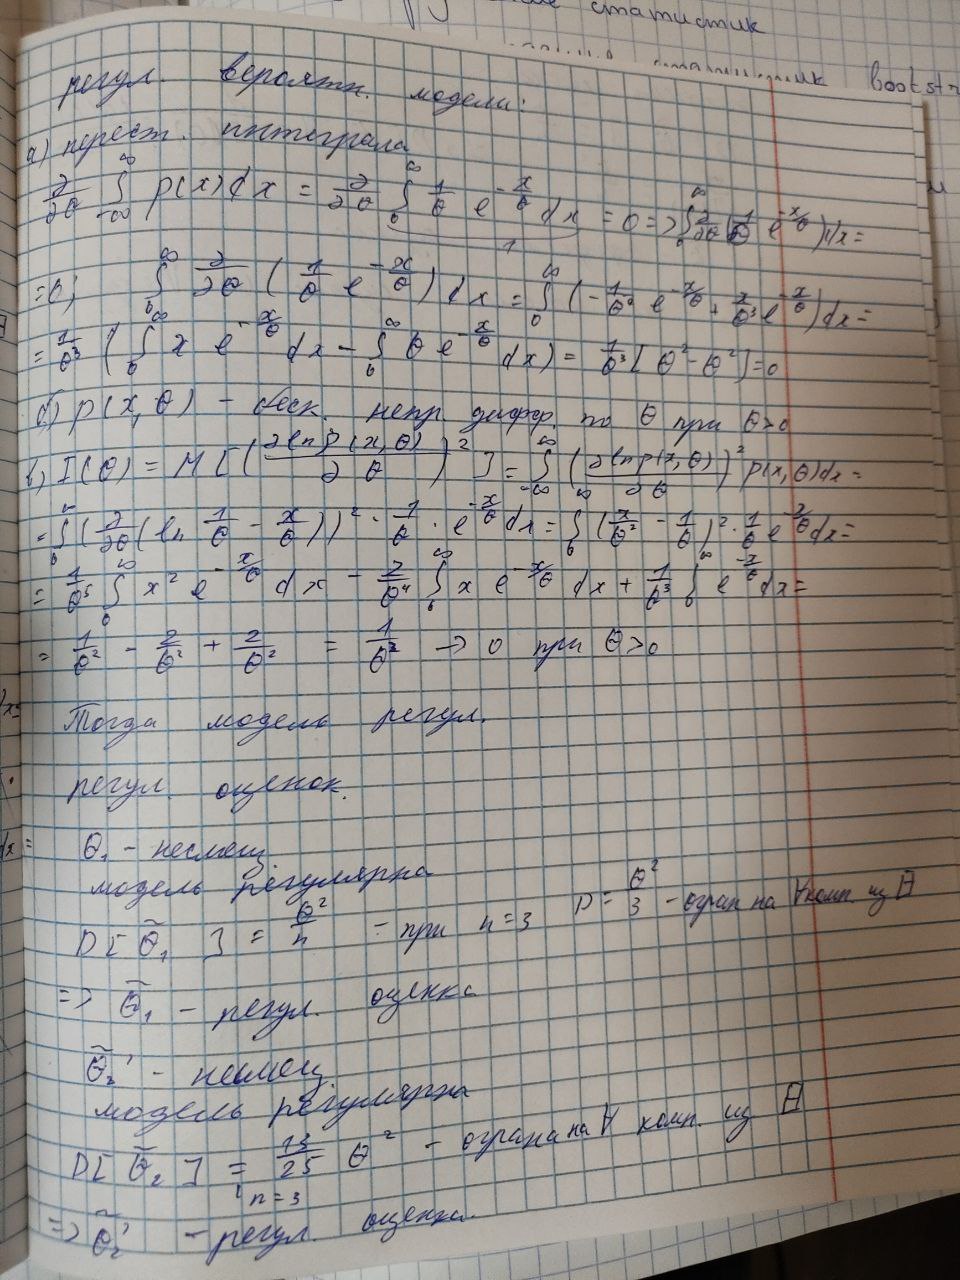 статистик
bootst
регул. вероятн. модели:
а) перест. интеграла
∂/∂θ ∫_{-∞}^{∞} p(x)dx = ∂/∂θ ∫_0^∞ 1/θ e^{-x/θ} dx = 0 => ∫_0^∞ ∂/∂θ (1/θ e^{-x/θ})dx =
1
= 0) ∫_0^∞ ∂/∂θ (1/θ e^{-x/θ}) dx = ∫_0^∞ (-1/θ² e^{-x/θ} + x/θ³ e^{-x/θ})dx =
= 1/θ³ (∫_0^∞ x e^{-x/θ} dx - ∫_0^∞ θ e^{-x/θ} dx) = 1/θ³ [θ² - θ²] = 0
б) p(x, θ) - беск. непр. дифф. по θ при θ>0
в) I(θ) = M[(∂ln p(x,θ)/∂θ)²] = ∫_{-∞}^{∞} (∂ln p(x,θ)/∂θ)² p(x,θ)dx =
= ∫_0^∞ (∂/∂θ (ln 1/θ - x/θ))² · 1/θ · e^{-x/θ} dx = ∫_0^∞ (x/θ² - 1/θ)² · 1/θ e^{-x/θ} dx =
= 1/θ⁵ ∫_0^∞ x² e^{-x/θ} dx - 2/θ⁴ ∫_0^∞ x e^{-x/θ} dx + 1/θ³ ∫_0^∞ e^{-x/θ} dx =
= 1/θ² - 2/θ² + 2/θ² = 1/θ² -> 0 при θ>0
Тогда модель регул.
регул. оценок.
θ₁ - несмещ.
модель регулярна
D[θ̃₁] = θ²/n - при n=3 D = θ²/3 - огран на ∀ комп. из Θ
=> θ̃₁ - регул. оценка
θ̃₂' - несмещ.
модель регулярна
D[θ̃₂] = 13/25 θ² - огран на ∀ комп. из Θ
n=3
=> θ̃₂' - регул. оценка.